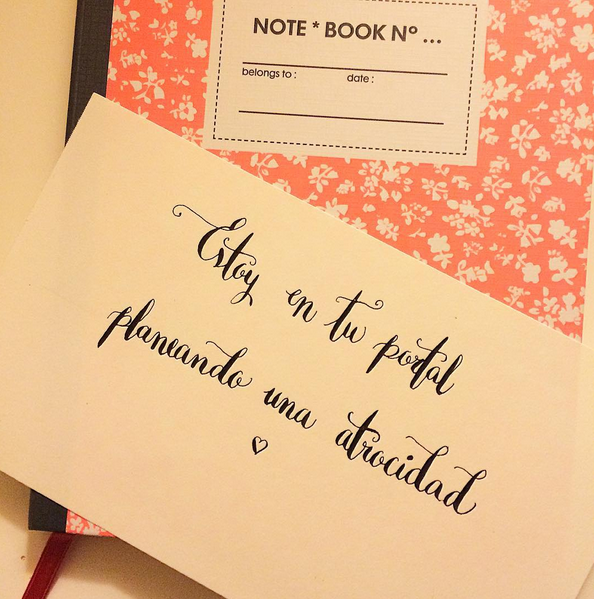 NOTE * BOOK Nº ...
belongs to : date :
Estoy en tu portal
planeando una atrocidad